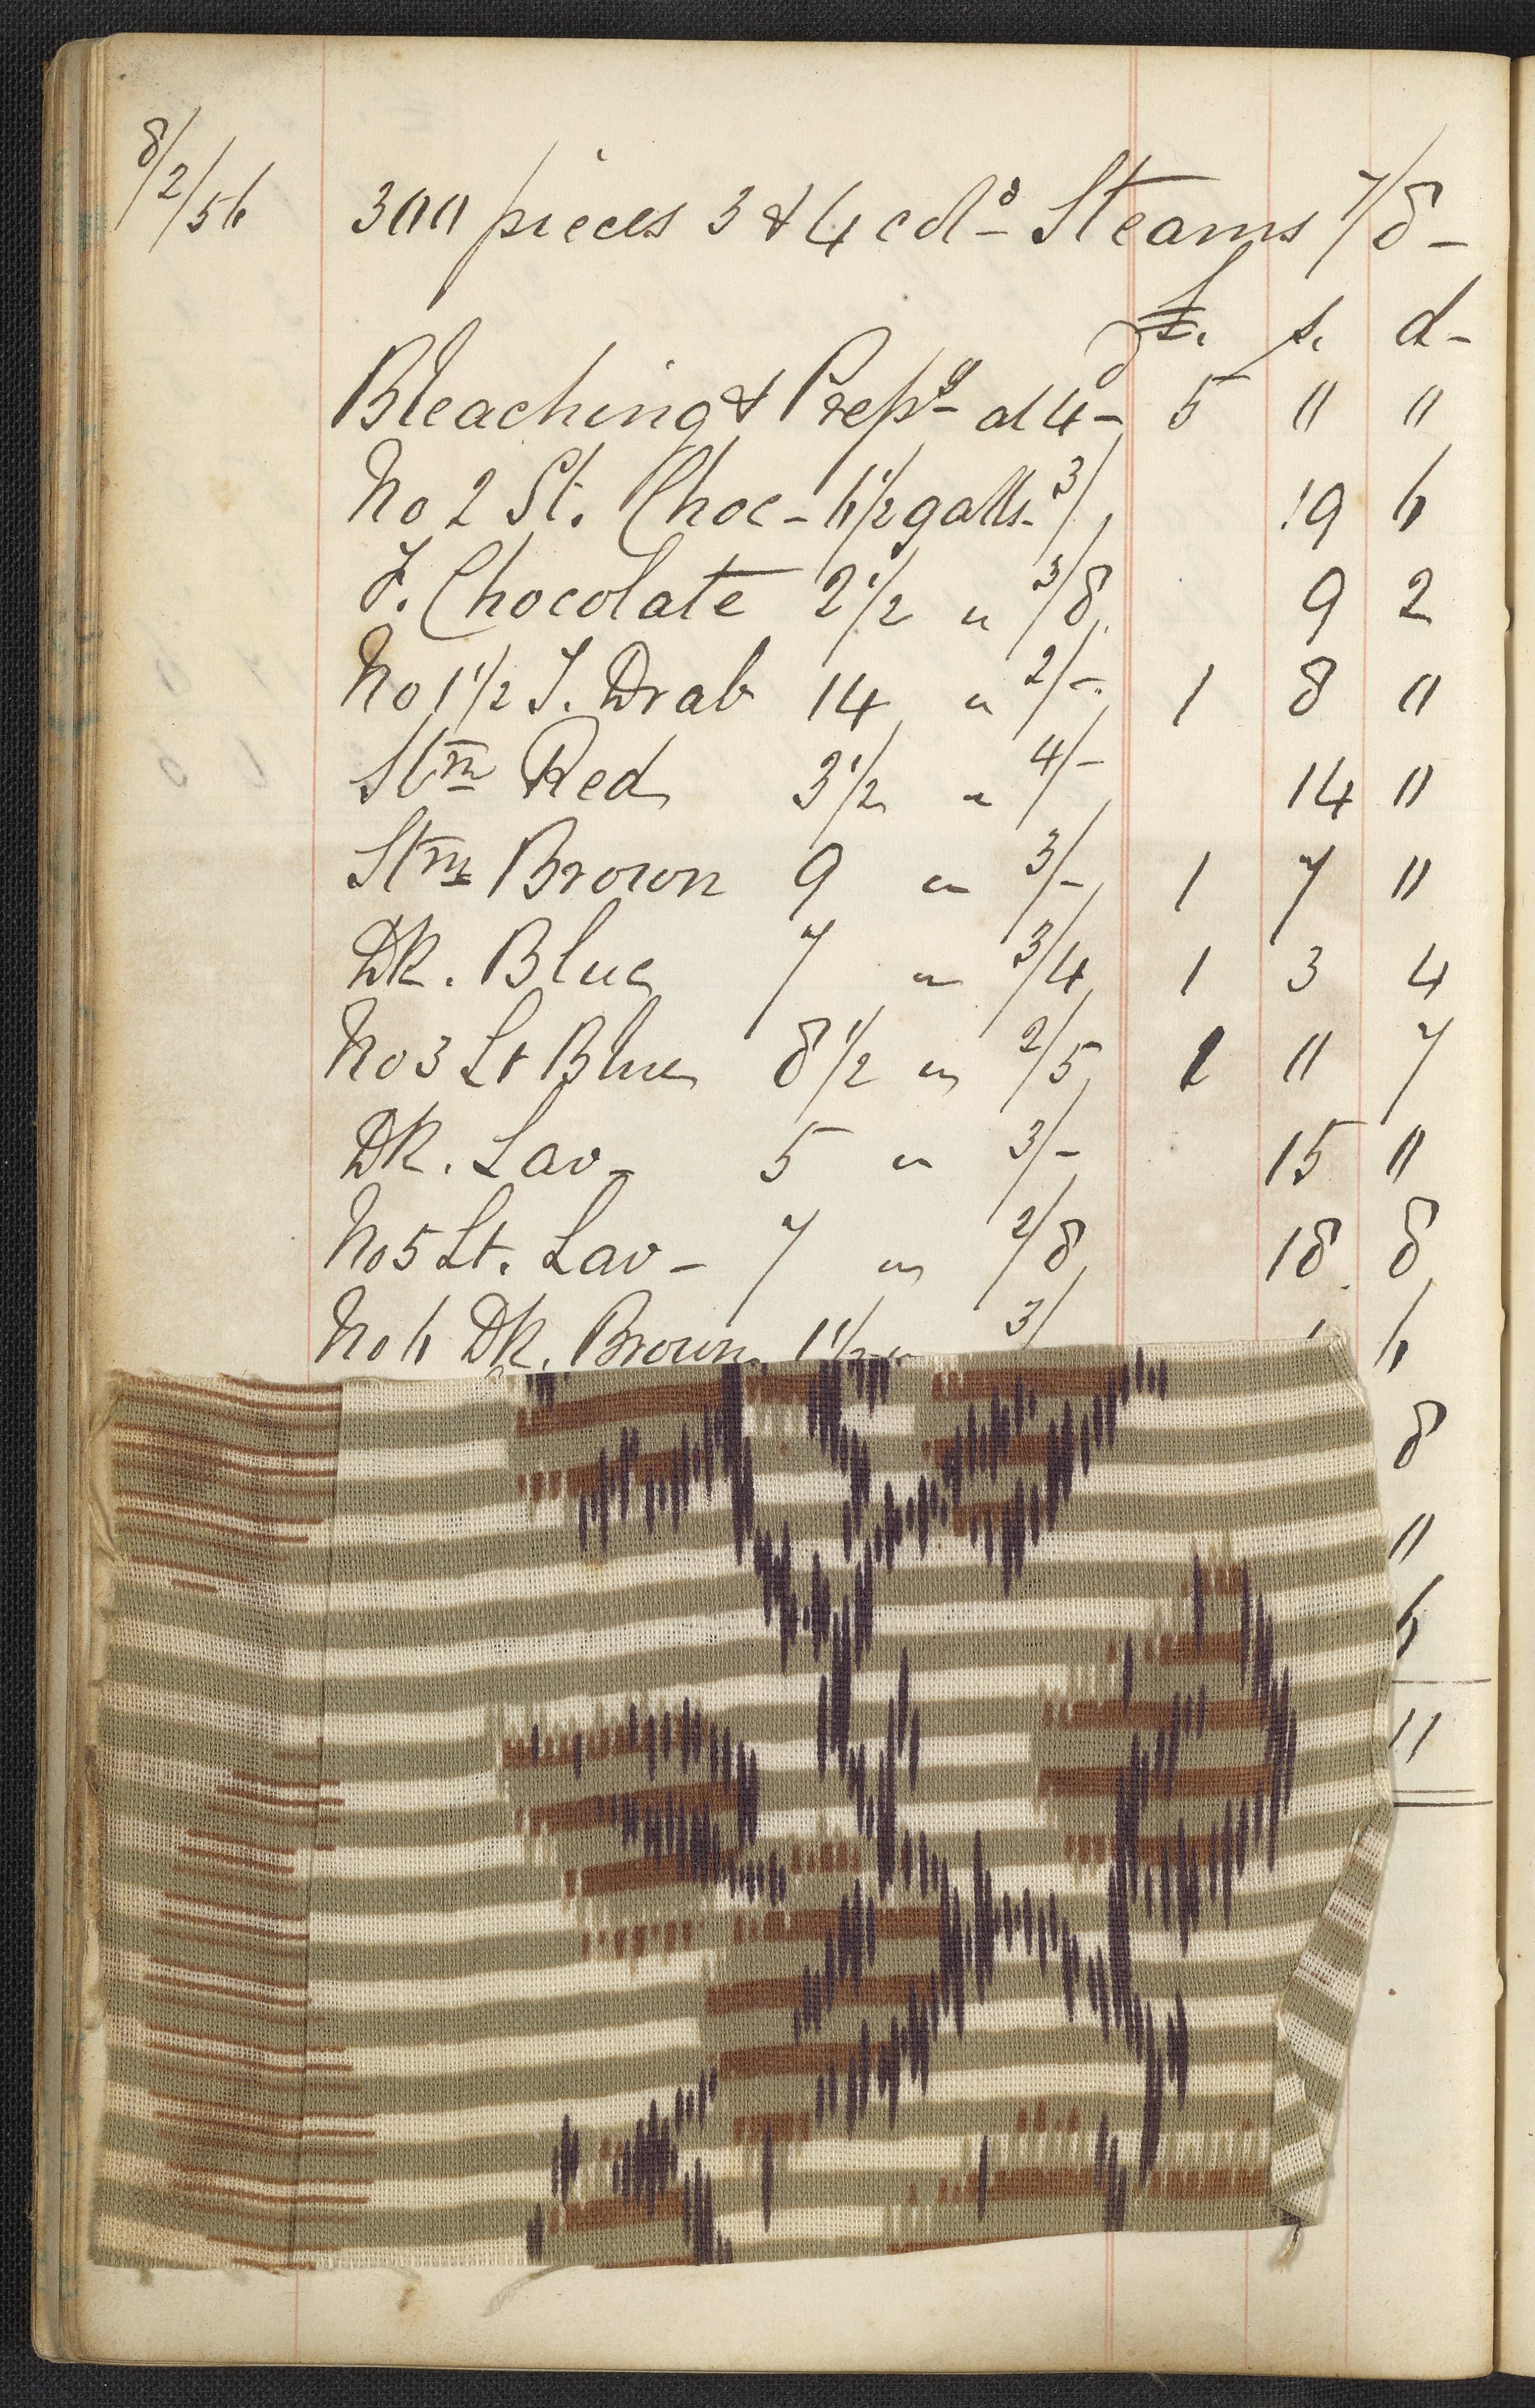 8/2/56 300 pieces 3 & 4 cols Steams 7/8 -
£. s. d -
Bleaching & Prepg at 4d - 5 " "
No 2 St. Choc - 6 1/2 galls. 3/ 19 6
F. Chocolate 2 1/2 " 3/8 9 2
No 1 1/2 F. Drab 14 " 2/- 1 8 "
Stm Red 3 1/2 " 4/- 14 "
Stm Brown 9 " 3/- 1 7 "
Dk. Blue 7 " 3/4 1 3 4
No 3 Lt Blue 8 1/2 " 2/5 1 " 7
Dk. Lav - 5 " 3/- 15 "
No 5 Lt. Lav - 7 " 2/8 18 8
No 6 Dk. Brown 1 1/2 " 3/ 6
8
"
6
11